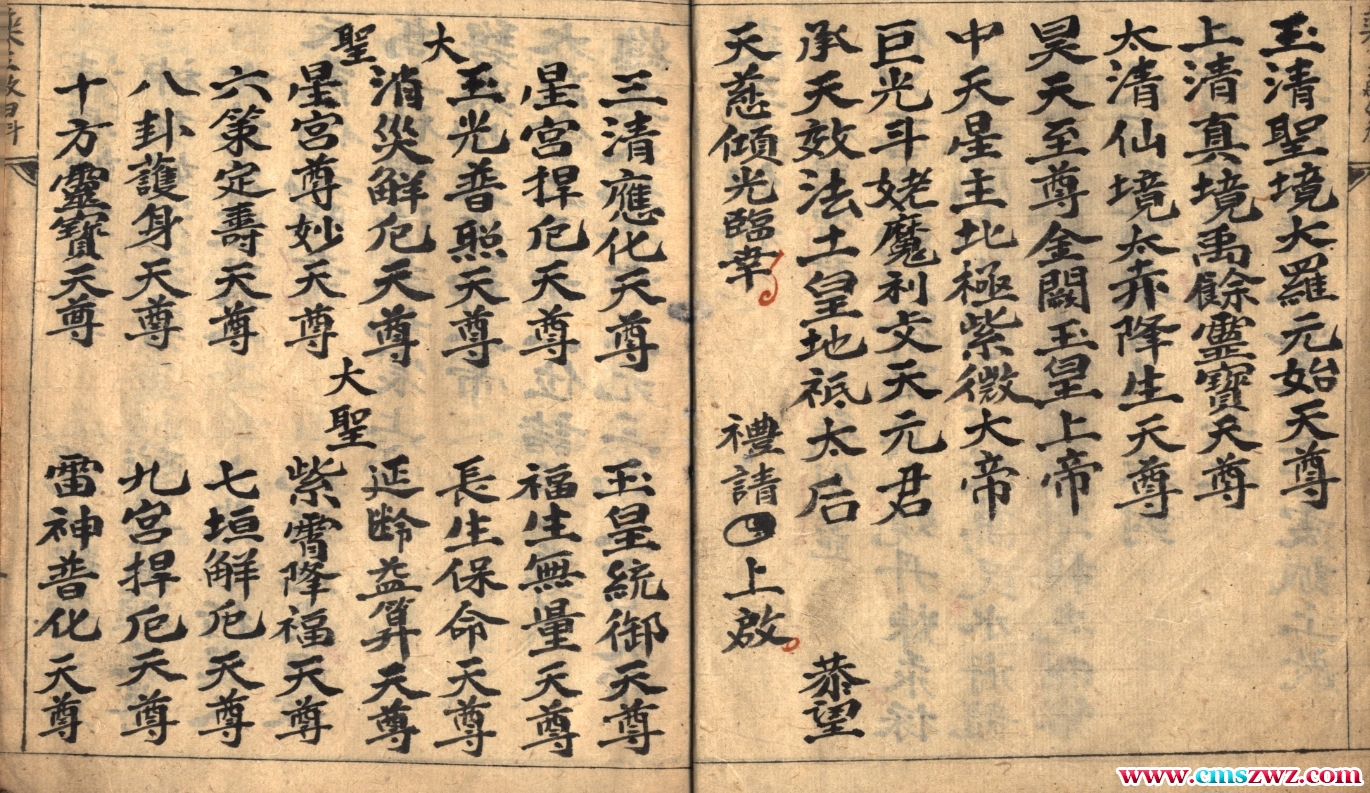 玉清聖境大羅元始天尊
上清真境禹餘靈寶天尊
太清仙境太赤降生天尊
昊天至尊金闕玉皇上帝
中天星主北極紫微大帝
巨光斗姥魔利攴天元君
承天效法土皇地祇太后
恭望
天慈傾光臨幸
禮請
上啟
三清應化天尊
玉皇統御天尊
星宮捍厄天尊
福生無量天尊
大聖
玉光普照天尊
長生保命天尊
消災解厄天尊
延齡益算天尊
大聖
星宮尊妙天尊
紫霄降福天尊
六策定壽天尊
七垣解厄天尊
八卦護身天尊
九宮捍厄天尊
十方靈寶天尊
雷神普化天尊
www.cmszwz.com